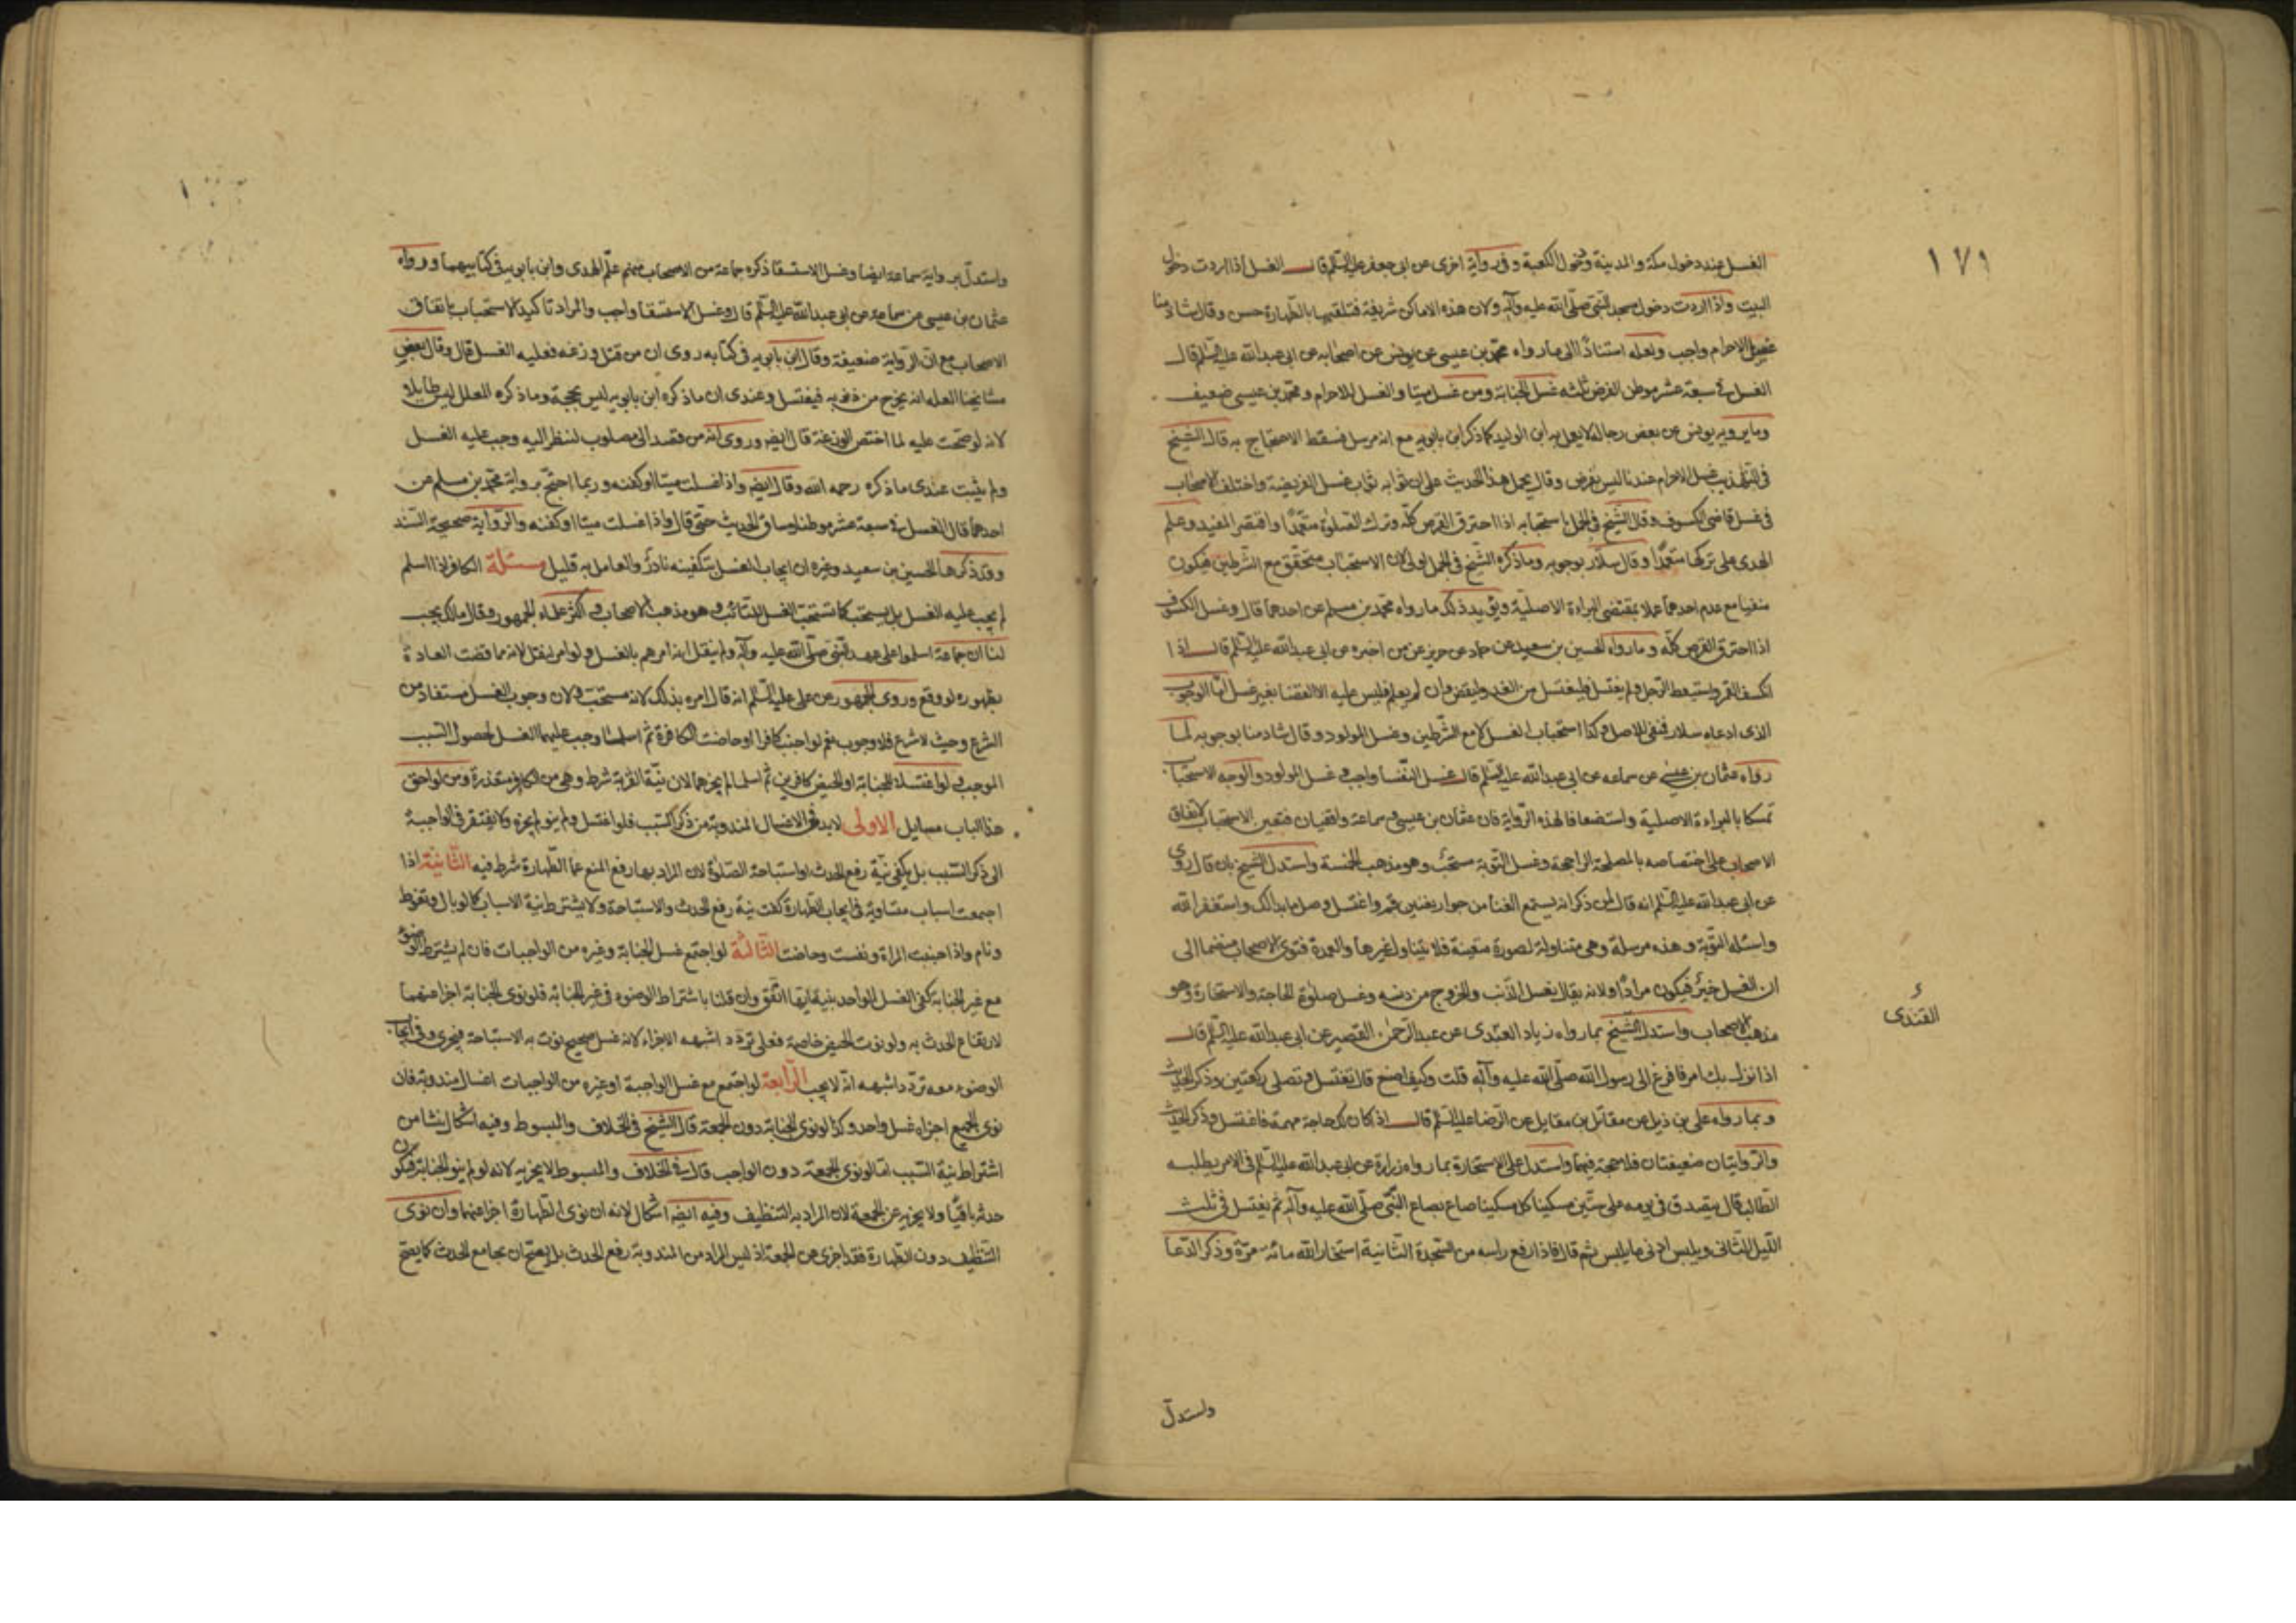 ١٧١
الغسل عند دخول مكة والمدينة ودخول الكعبة وفى رواية اخرى عن ابى جعفر عليه السّلم قال الغسل اذا اردت دخول
البيت واذا اردت دخول مسجد النّبى صلّى الله عليه وآله ولان هذه الاماكن شريفة فتلقيها بالطّهارة حسن وقال شاذ منا
غسل الاحرام واجب ولعله استنادًا الى ما رواه محمّد بن عيسى عن يونس عن اصحابه عن ابى عبدالله عليه السّلم قال
الغسل فى سبعة عشر موطن الفرض ثلثه غسل الجنابة ومن غسل ميتا والغسل للاحرام ومحمّد بن عيسى ضعيف
وما يرويه يونس عن بعض رجاله لا يعمل به ابن الوليد كما ذكر ابن بابويه مع انه مرسل فسقط الاحتجاج به قال الشّيخ
فى التّهذيب غسل الاحرام عندنا ليس بفرض وقال يحمل هذا الحديث على ان ثوابه ثواب غسل الفريضة واختلف الاصحاب
فى غسل قاضى الكسوف وقال الشّيخ فى الجمل باستحبابه اذا احترق القرص كلّه وترك الصّلوة متعمّدًا واقتصر المفيد وعلم
الهدى على تركها متعمّدًا وقال سلّار بوجوبه وما ذكره الشّيخ فى الجمل اولى لان الاستحباب متحقّق مع الشّرطين فيكون
منفيا مع عدم احدهما عملا بمقتضى البراءة الاصليّة ويؤيد ذلك ما رواه محمّد بن مسلم عن احدهما قال وغسل الكسوف
اذا احترق القرص كلّه وما رواه الحسين بن سعيد عن حماد عن حريز عمن اخبره عن ابى عبدالله عليه السّلم قال اذا
انكسف القمر واستيقظ الرّجل ولم يغتسل فليغتسل من الغد وليقض وان لم يعلم فليس عليه الا القضا بغير غسل امّا الوجوب
الذى ادعاه سلار فنفى للاصل وكذا استحباب الغسل لا مع الشّرطين وغسل المولود وقال شاذ منا بوجوبه لما
رواه عثمان بن عيسى عن سماعه عن ابى عبدالله عليه السّلم قال غسل النّفسا واجب وغسل المولود والوجه الاستحباب
تمسكا بالبراءة الاصلية واستضعافا لهذه الرّواية فان عثمان بن عيسى وسماعة واقفيان فتعين الاستحباب لاتفاق
الاصحاب على اختصاصه بالمصلحة الراجحة وغسل التّوبة مستحبّ وهو مذهب الخمسة واستدل الشّيخ بان قال روى
عن ابى عبدالله عليه السّلم انه قال لمن ذكر انه يستمع الغنا من جوار يغنين قم واغتسل وصل ما بدا لك واستغفر الله
واسئله التّوبة وهذه مرسلة وهى متناولة لصورة معينة فلا يتناول غيرها والعمدة فتوى الاصحاب منضما الى
ان الغسل خير فيكون مرادًا ولانه يقال بغسل الذّنب والخروج من دنسه وغسل صلوة الحاجة والاستخارة وهو
مذهب الاصحاب واستدل الشّيخ بما رواه زياد العبّدى عن عبد الرّحمن القصير عن ابى عبدالله عليه السّلم قال
القندى
اذا نزل بك امر فافزع الى رسول الله صلّى الله عليه وآله قلت وكيف اصنع قال تغتسل وتصلى ركعتين وذكر الحديث
وبما رواه على بن ذيل عن مقاتل بن مقاتل عن الرّضا عليه السّلم قال اذ كان لك حاجة مهمة فاغتسل وذكر الحديث
والرّوايتان ضعيفتان فلا حجة فيهما واستدل على الاستخارة بما رواه زرارة عن ابى عبدالله عليه السّلم فى الامر يطلبه
الطّالب قال يتصدق فى يومه على ستّين مسكينا كل مسكينا صاع بصاع النّبى صلّى الله عليه وآله ثم يغتسل فى ثلث
اللّيل الثّانى ويلبس ادنى ما يلبس ثم قال فاذا رفع راسه من السّجدة الثّانية استخار الله مائة مرّة وذكر الدّعا
واستدلّ
واستدلّ برواية سماعة ايضا وغسل الاستسقا ذكره جماعة من الاصحاب منهم علم الهدى وابن بابويه فى كتابيهما ورواه
عثمان بن عيسى عن سماعه عن ابى عبدالله عليه السّلم قال وغسل الاستسقا واجب والمراد تاكيد الاستحباب باتفاق
الاصحاب مع انّ الرّواية ضعيفة وقال ابن بابويه فى كتابه روى ان من قتل وزغه فعليه الغسل قال وقال بعض
مشايخنا العله انه يخرج من ذنوبه فيغتسل وعندى ان ما ذكره ابن بابويه ليس بحجة وما ذكره المعلل ليس طايلا
لانه لو صحّت عليه لما اختص الوزغة قال ايضه وروى انه من قصد الى مصلوب لنظر اليه وجب عليه الغسل
ولم يثبت عندى ما ذكره رحمه الله وقال ايضه واذا غسلت ميتا او كفنه وربما احتجّ برواية محمّد بن مسلم عن
احدهما قال الغسل فى سبعة عشر موطنا وساق الحديث حتّى قال واذا غسلت ميتا او كفنه والرّواية صحيحة السّند
وقد ذكرها الحسين بن سعيد وغيره ان ايجاب الغسل بتكفينه نادرٌ والعامل به قليل مسئلة الكافر اذا اسلم
لم يجب عليه الغسل بل يستحبّ كما تستحبّ الغسل للتّائب وهو مذهب الاصحاب واكثر علماء الجمهور وقال مالك يجب
لنا ان جماعة اسلموا على عهد النّبى صلّى الله عليه وآله ولم ينقل انه امرهم بالغسل ولو امر لنقل لانه مما قضت العادة
بظهوره لو وقع وروى الجمهور عن على عليه السّلم انه قال امره بذلك لانه مستحبّ ولان وجوب الغسل مستفاد من
الشّرع وحيث لا شرع فلا وجوب نعم لو اجنب كافرا او حاضت الكافرة ثم اسلما وجب عليهما الغسل لحصول السّبب
الموجب ولو اغتسلا للجنابة او الحيض كافرين ثم اسلما لم يجزهما لان نيّة القربة شرط وهى من الكافر متعذرة ومن لواحق
هذا الباب مسايل الاولى لا بد فى الاغسال المندوبة من ذكر السّبب فلو اغتسل ولم ينو لم يجزه ولا يفتقر فى الواجبة
الى ذكر السّبب بل يكفى نيّة رفع الحدث او استباحة الصّلوة لان المراد بها رفع المنع عما الطّهارة شرط فيه الثّانية اذا
اجتمعت اسباب متساوية فى ايجاب الطّهارة كفت نية رفع الحدث والاستباحة ولا يشترط نية الاسباب كما لو بال وتغوط
ونام واذا اجنبت المراة ونفست وحاضت الثّالثة لو اجتمع غسل الجنابة وغيره من الواجبات فان لم يشترط الوضوء
مع غير الجنابة كفى الغسل الواحد بنية ايها اتّفق وان قلنا باشتراط الوضوء فى غير الجنابة فلو نوى الجنابة اجزا عنهما
لارتفاع الحدث به ولو نوت الحيض خاصة فعلى تردّد اشبهه الاجزاء لانه غسل صحيح نوت به الاستباحة فيجزى وفى ايجاب
الوضوء معه تردّد اشبهه انّه لا يجب الرّابعة لو اجتمع مع غسل الواجبة او غيره من الواجبات اغسال مندوبة فان
نوى الجميع اجزاء غسل واحد وكذا لو نوى الجنابة دون الجمعة قال الشّيخ فى الخلاف والمبسوط وفيه اشكال نشا من
اشتراط نية السّبب امّا لو نوى الجمعة دون الواجب قال فى الخلاف والمبسوط لا يجزيه لانه لو لم ينو الجنابة فيكون
حدثه باقيًا ولا يجزيه عن الجمعة لان المراد به التنظيف وفيه ايضه اشكال لانه ان نوى الطّهارة اجزا عنهما وان نوى
التّنظيف دون الطّهارة فقد اجزى عن الجمعة اذ ليس المراد من المندوبة رفع الحدث بل يصحّ ان يجامع الحدث كما يصحّ